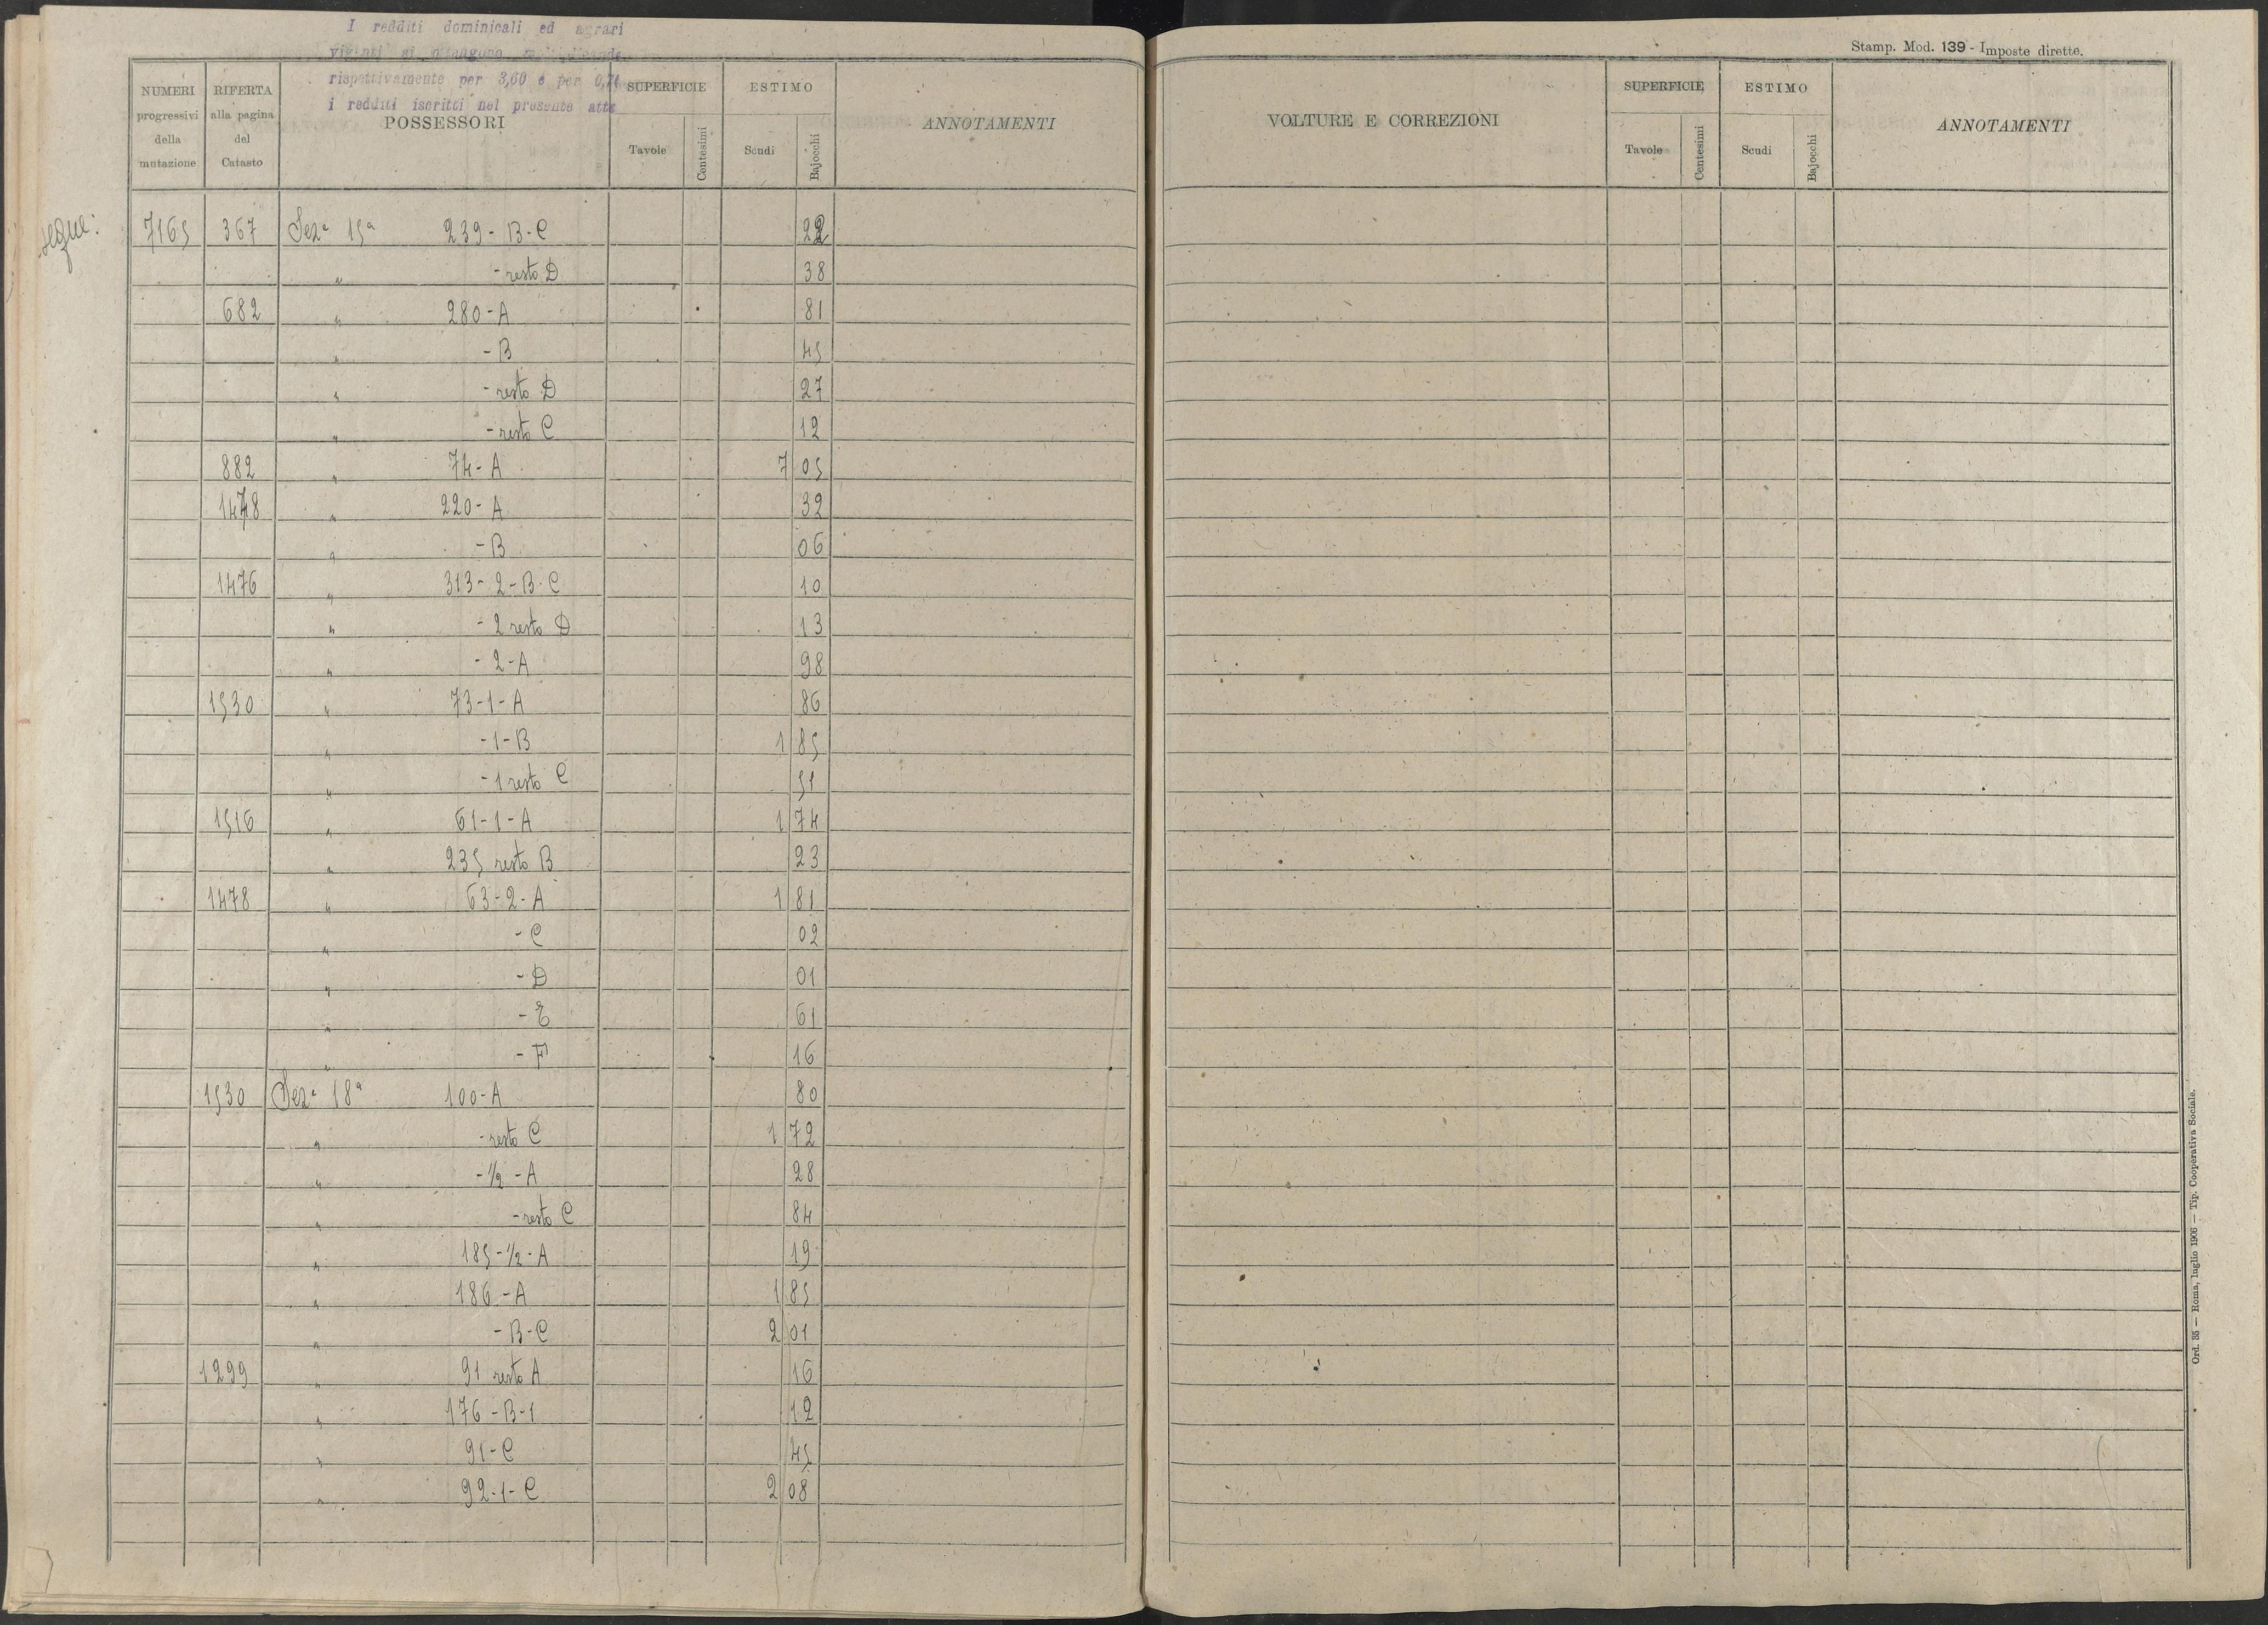 I redditi dominicali ed agrari
vigenti si ottengono
rispettivamente per 3,60 e per
i redditi iscritti nel presente atto
Stamp. Mod. 139 - Imposte dirette.
NUMERI progressivi della mutazione RIFERTA alla pagina del Catasto POSSESSORI SUPERFICIE Tavole Centesimi ESTIMO Scudi Bajocchi ANNOTAMENTI
VOLTURE E CORREZIONI SUPERFICIE Tavole Centesimi ESTIMO Scudi Bajocchi ANNOTAMENTI
segue:
7165 367 Seza 15a 239 - B - C 22
" - resto D 38
682 " 280 - A 81
" - B 45
" - resto D 27
" - resto C 12
882 " 74 - A 7 05
1478 " 220 - A 32
" - B 06
1476 " 313 - 2 - B - C 10
" - 2 resto D 13
" - 2 - A 98
1530 " 73 - 1 - A 86
" - 1 - B 1 85
" - 1 resto C 51
1516 " 61 - 1 - A 1 74
" 235 resto B 23
1478 " 63 - 2 - A 1 81
" - C 02
" - D 01
" - E 61
" - F 16
1530 Seza 18a 100 - A 80
" - resto C 1 72
" - 1/2 - A 28
" - resto C 84
" 185 - 1/2 - A 19
" 186 - A 1 85
" - B - C 2 01
1299 " 91 resto A 16
" 176 - B - 1 12
" 91 - C 45
" 92 - 1 - C 2 08
Ord. 35 — Roma, luglio 1906 — Tip. Cooperativa Sociale.